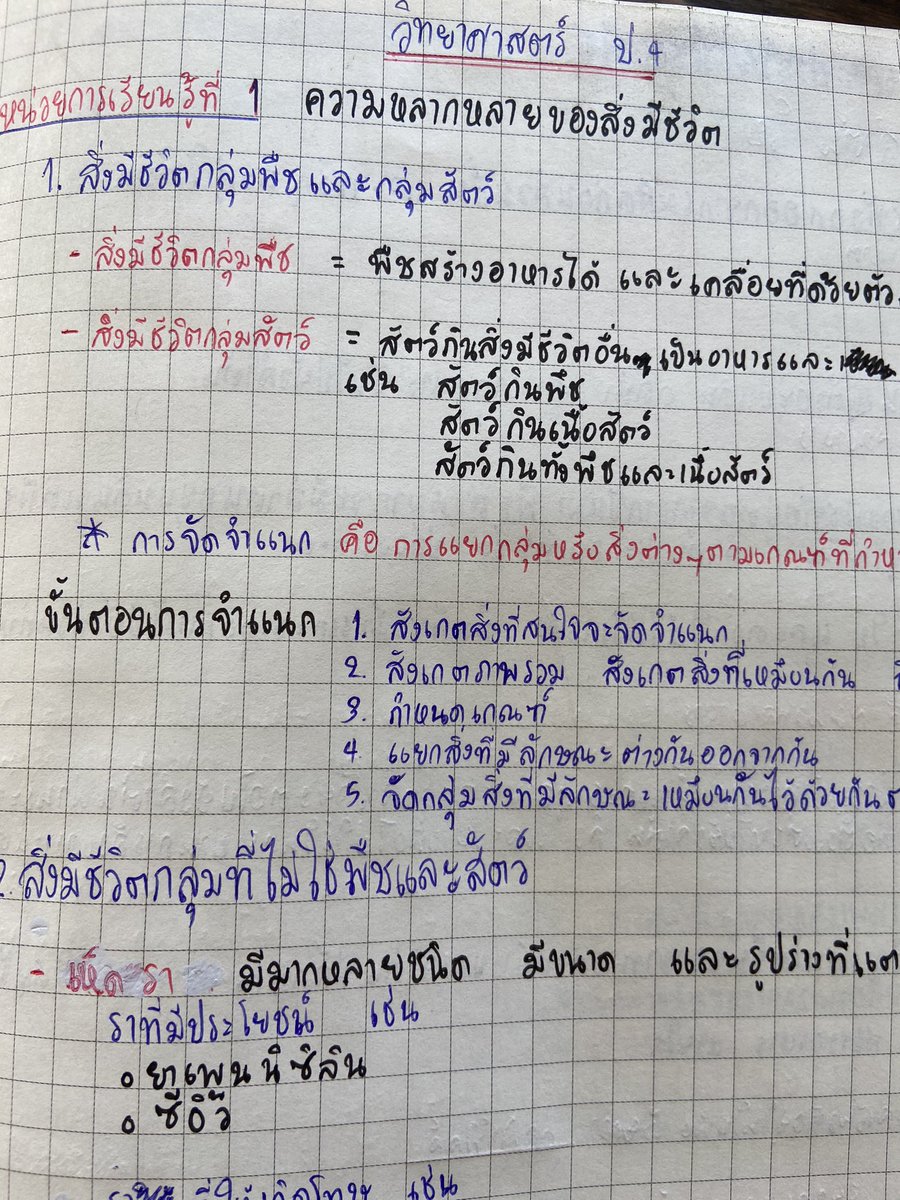 วิทยาศาสตร์ ป.4
หน่วยการเรียนรู้ที่ 1 ความหลากหลายของสิ่งมีชีวิต
1. สิ่งมีชีวิตกลุ่มพืชและกลุ่มสัตว์
- สิ่งมีชีวิตกลุ่มพืช = พืชสร้างอาหารได้ และเคลื่อยที่ด้วยตัว
- สิ่งมีชีวิตกลุ่มสัตว์ = สัตว์กินสิ่งมีชีวิตอื่นๆ เป็นอาหารและ
เช่น สัตว์กินพืช
สัตว์กินเนื้อสัตว์
สัตว์กินทั้งพืชและเนื้อสัตว์
* การจัดจำแนก คือ การแยกกลุ่มหรือสิ่งต่างๆตามเกณฑ์ที่กำห
ขั้นตอนการจำแนก 1. สังเกตสิ่งที่สนใจจะจัดจำแนก
2. สังเกตภาพรวม สังเกตสิ่งที่เหมือนกัน
3. กำหนดเกณฑ์
4. แยกสิ่งที่มีลักษณะต่างกันออกจากกัน
5. จัดกลุ่มสิ่งที่มีลักษณะเหมือนกันไว้ด้วยกัน
2. สิ่งมีชีวิตกลุ่มที่ไม่ใช่พืชและสัตว์
- เห็ด รา มีมากหลายชนิด มีขนาด และรูปร่างที่แต
ราที่มีประโยชน์ เช่น
ยาเพนนิซิลิน
ซีอิ๊ว
เช่น